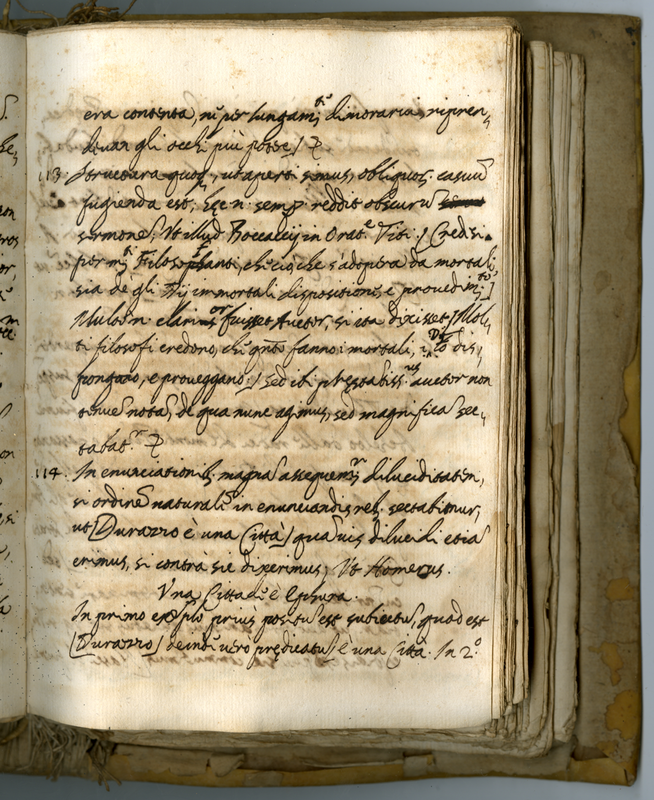 era contenta, nè per lungam.te dimorarui, ripren,
deuan gli occhi più posse)
113. Structura quoq, ut aperti simus, obliquor. casuũ
fugienda est, hęc n. semp. reddit obscurũ
sermonẽ, Vt illud Boccaccij in Orat.e Titi: (Credesi
per m.ti Filosofanti, che ciò che s'adopera da mortali,
sia de gli Dij immortali dispositione, e proued.m.to)
Multò n. clarior fuisset Auctor, si ita dixisset (Mol,
ti filosofi credono, che q.nto fanno i mortali, i Dei dis,
pongano, e proueggano:) sed ibi pręstabiliss.us auctor non
tenuẽ notã, de qua nunc agimus, sed magnificã sec,
tabat.r
114. In enunciationib. magnã assequemur diluciditatem,
si ordinẽ naturalẽ in enunciandis reb. sectabimur,
ut (Durazzo è una Città) quãuis dilucidi etiã
erimus, si contrà sic dixerimus, Vt Homerus.
Vna Cittade è Ephira.
In primo exẽplo priùs positũ est subiectũ, quod est
(Durazzo) deindè uero prędicatũ è una Città. In 2.o